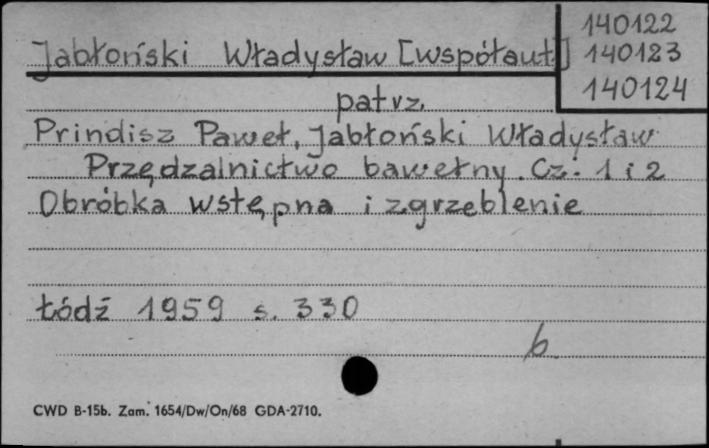 140122
Jabłoński Władysław [współaut.] 140123
140124
patrz
Prindisz Paweł, Jabłoński Władysław
Przędzalnictwo bawełny. Cz. 1 i 2
Obróbka wstępna i zgrzeblenie
Łódź 1959 s. 330
b
CWD B-15b. Zam. 1654/Dw/On/68 GDA-2710.